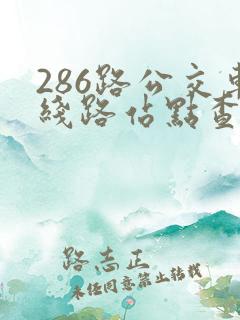 286路公交車
綫路佔點查
路志正
未經同意禁止轉載